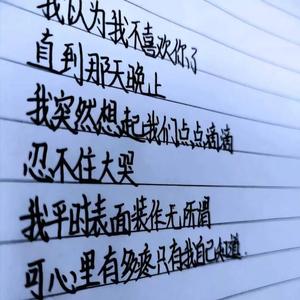 我以为我不喜欢你了
直到那天晚上
我突然想起我们点点滴滴
忍不住大哭
我平时表面装作无所谓
可心里有多疼只有我自己知道.